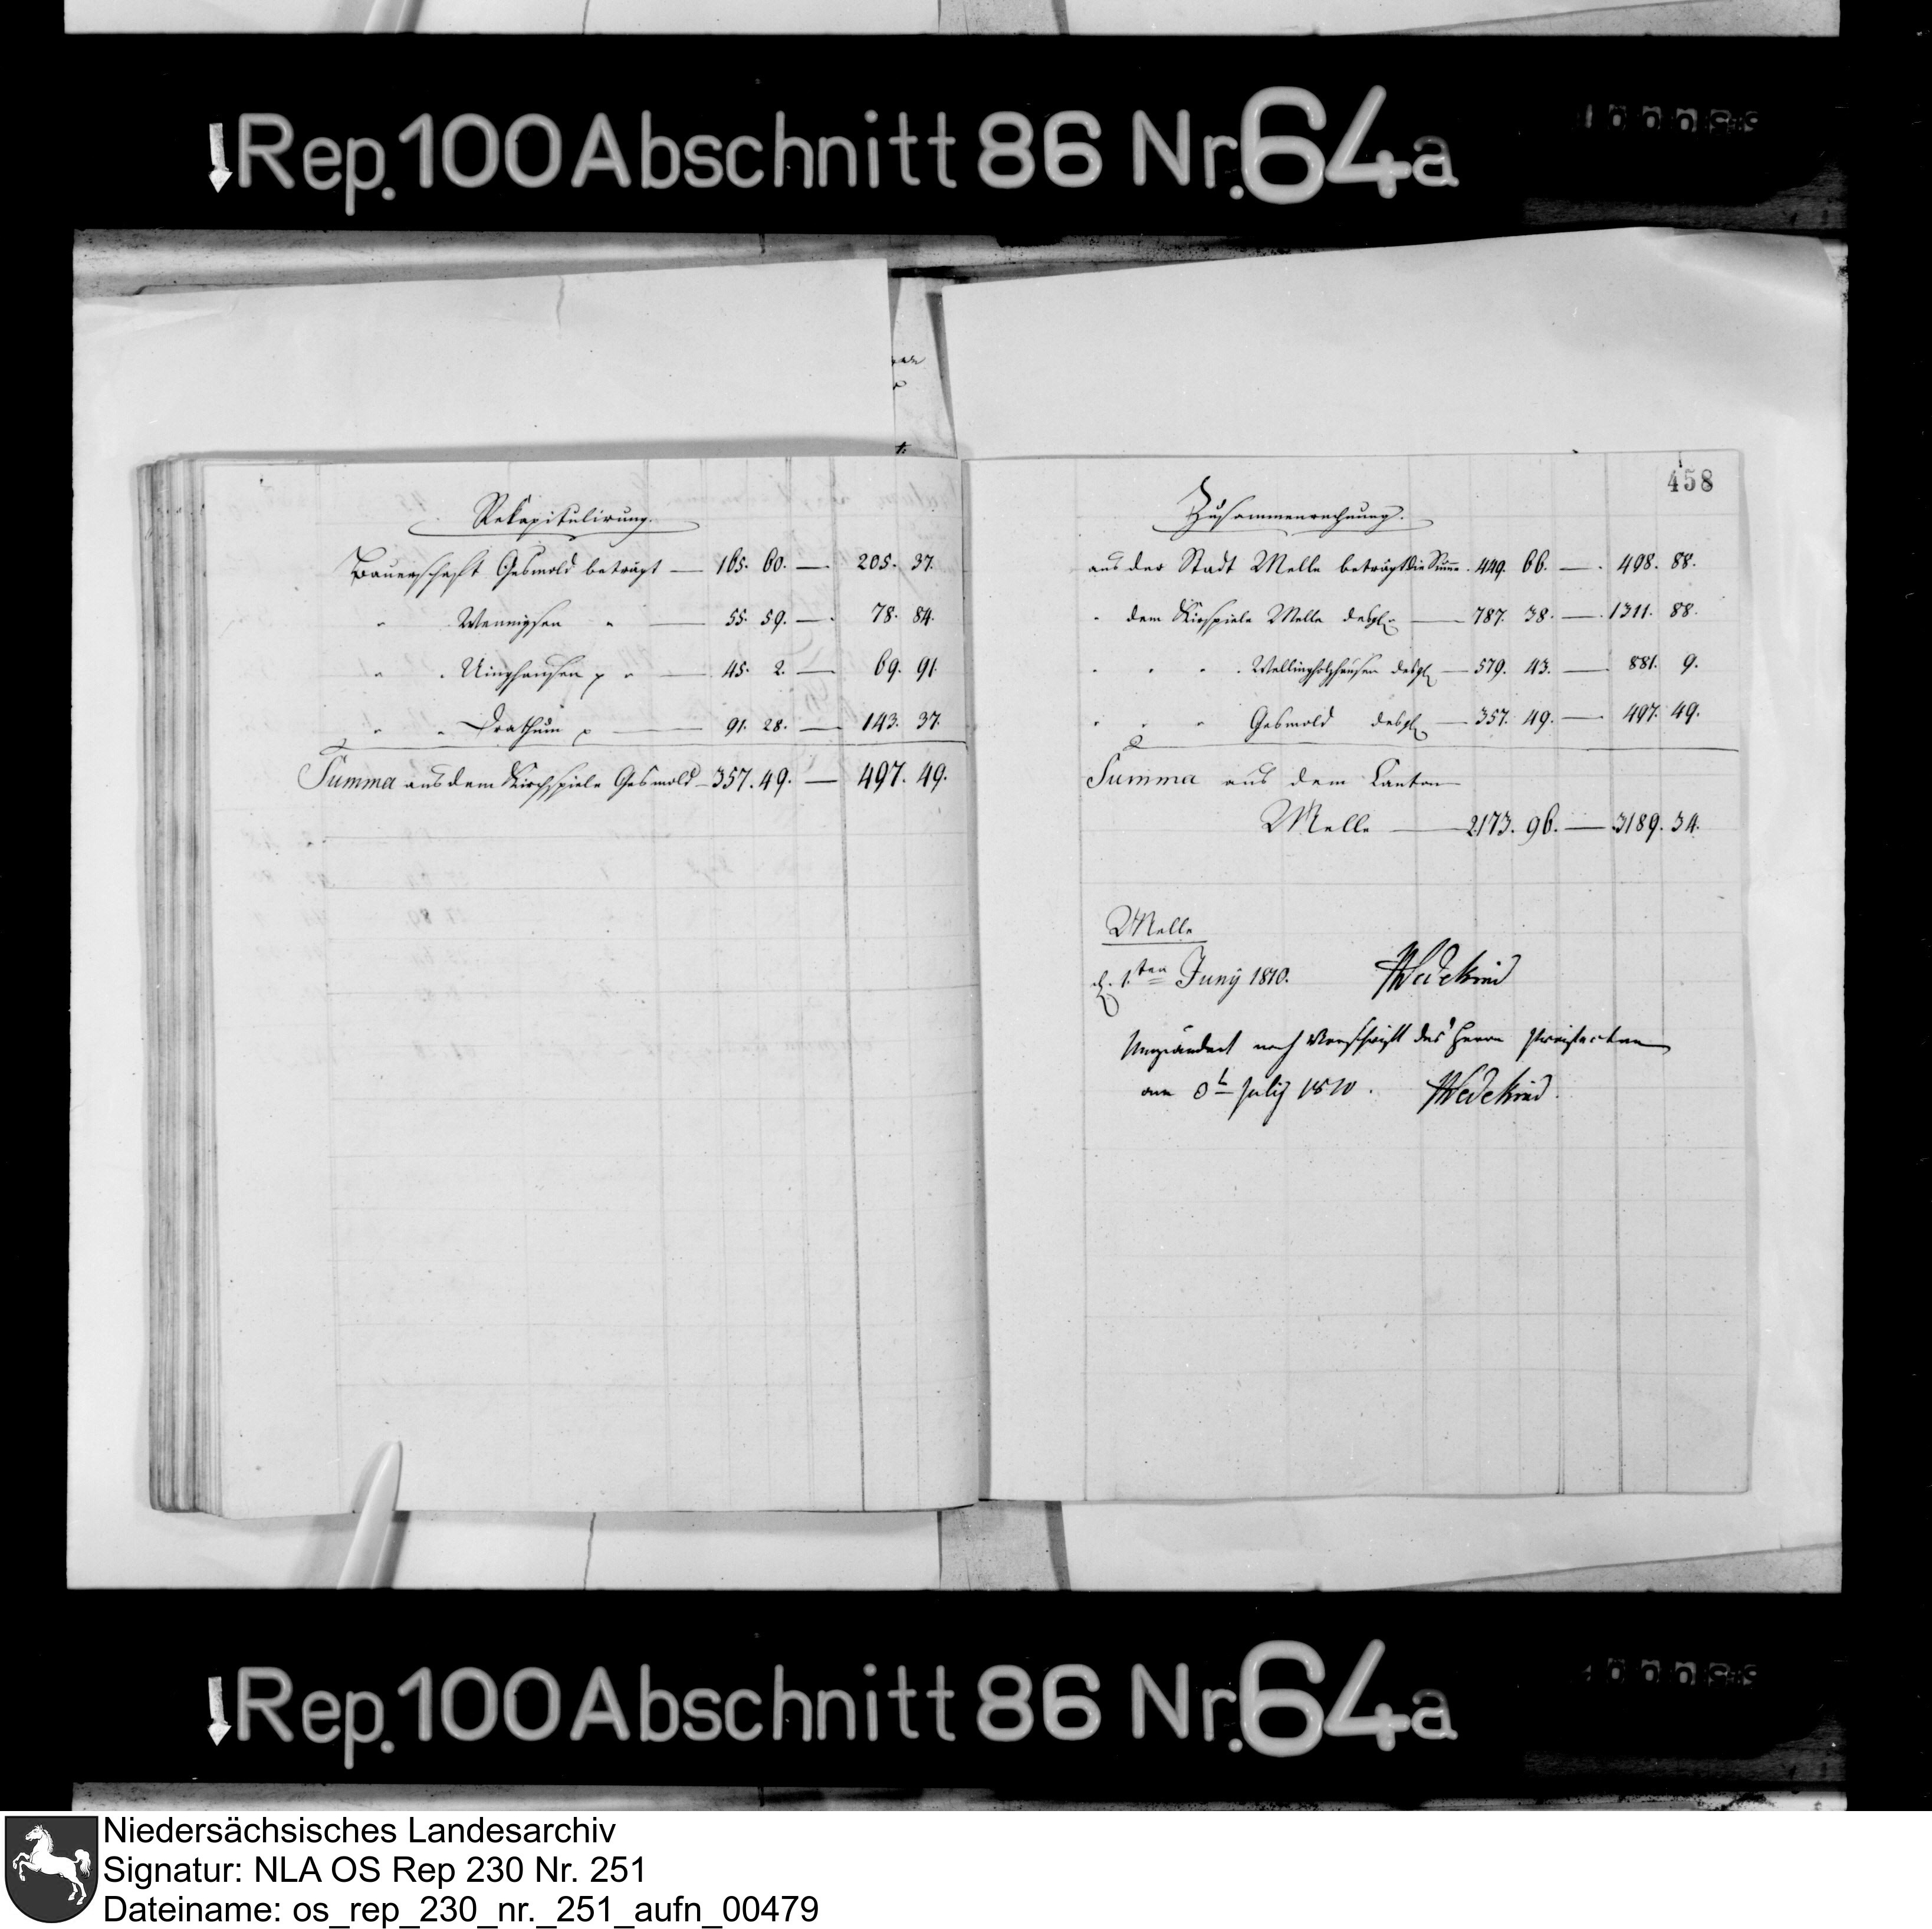 Rep. 100 Abschnitt 86 Nr. 64a
Rekapitulirung.
Bauerschaft Gesmold beträgt — 165. 60. — 205. 37.
" Wennigsen " — 55. 59. — 78. 84.
" " Uinghausen " — 45. 2. — 69. 91.
" " Drathum — 91. 28. — 143. 37.
Summa aus dem Kirchspiele Gesmold — 357. 49. — 497. 49.
458
Zusammenrechnung.
aus der Stadt Melle beträgt die Summe. 449. 66. — 498. 88.
" dem Kirspiele Melle desgl. — 787. 38. — 1311. 88.
" " " Wellingholzhausen desgl. — 579. 43. — 881. 9.
" " " Gesmold desgl. — 357. 49. — 497. 49.
Summa aus dem Canton
Melle — 2173. 96. — 3189. 34.
Melle
d. 1.ten Juny 1810. Wedekind
Umgeändert nach Vorschrift des Herrn
am July 1810. Wedekind.
Rep. 100 Abschnitt 86 Nr. 64a
Niedersächsisches Landesarchiv
Signatur: NLA OS Rep 230 Nr. 251
Dateiname: os_rep_230_nr._251_aufn_00479